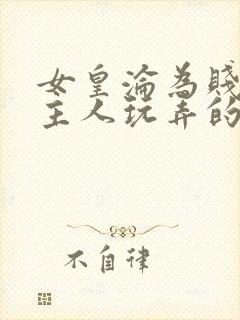 女皇淪為賤
主人玩弄的
不自律